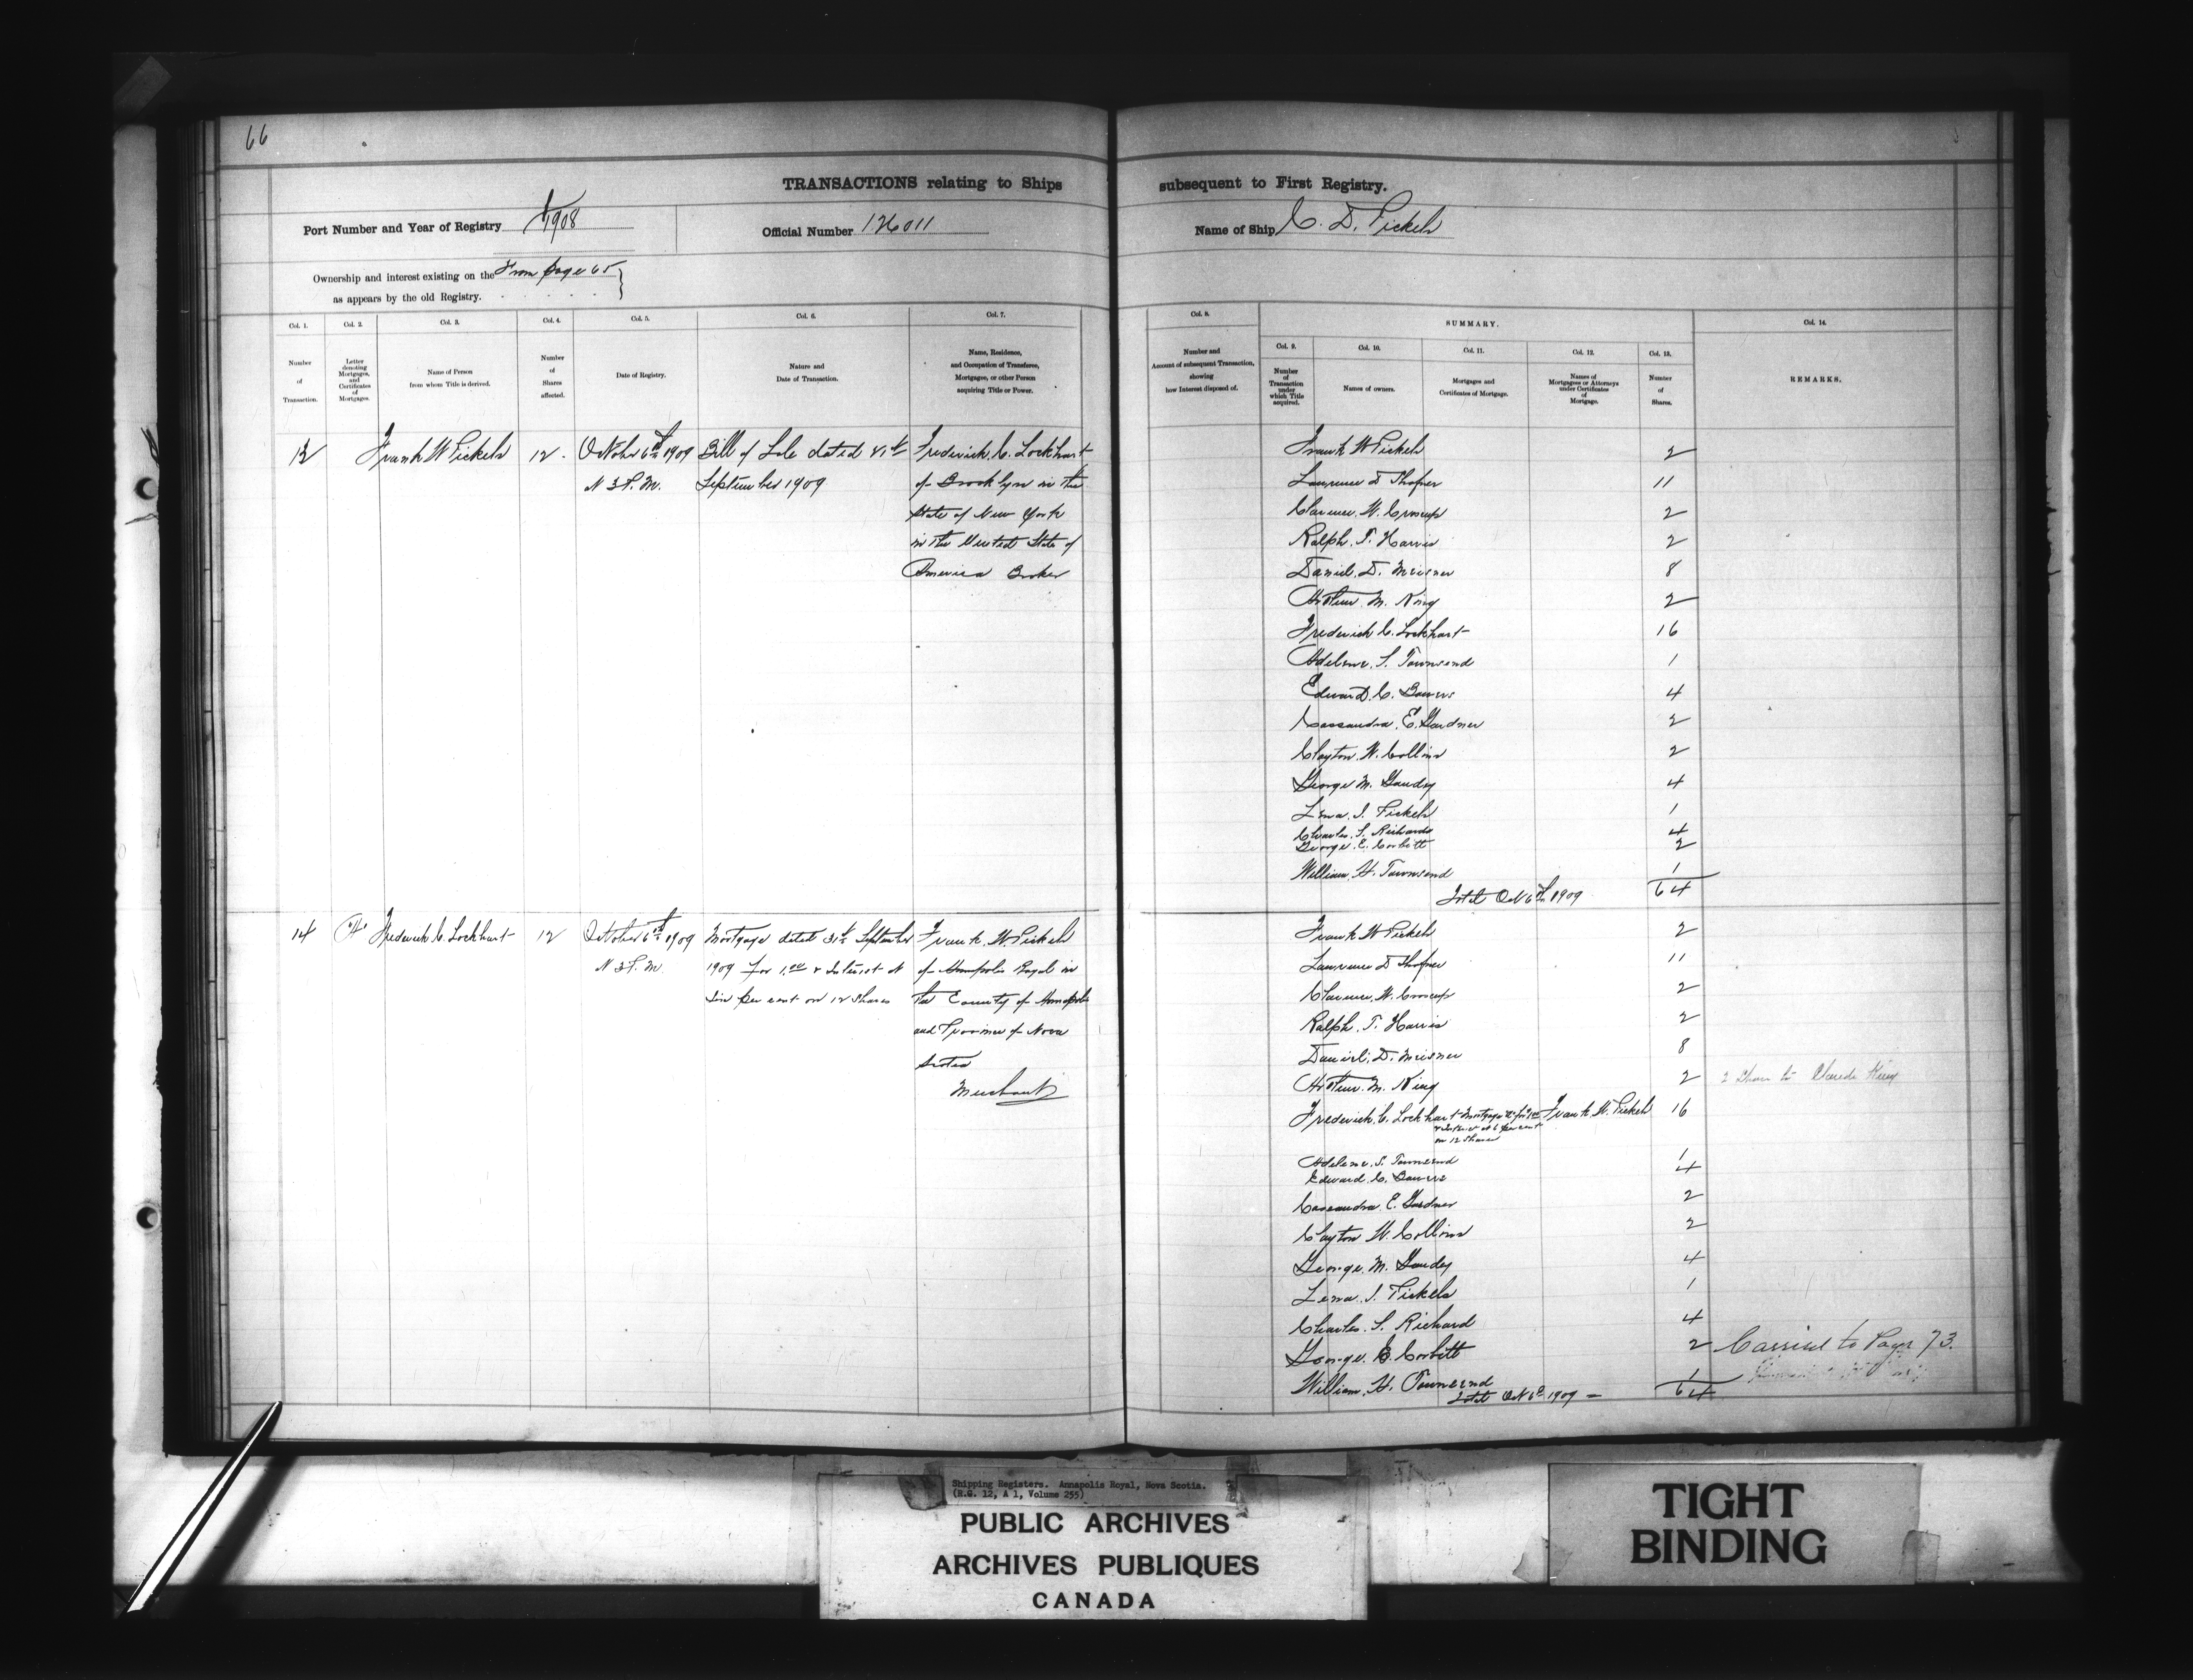 66
TRANSACTIONS relating to Ships subsequent to First Registry.
Port Number and Year of Registry 1/1908
Official Number 126011
Name of Ship C. D. Pickels
Ownership and interest existing on the From page 65
as appears by the old Registry.
Col. 1. Col. 2. Col. 3. Col. 4. Col. 5. Col. 6. Col. 7. Col. 8. SUMMARY. Col. 14.
Col. 9. Col. 10. Col. 11. Col. 12. Col. 13.
Number of Transaction.
Letter denoting Mortgages, and Certificates of Mortgages.
Name of Person from whom Title is derived.
Number of Shares affected.
Date of Registry.
Nature and Date of Transaction.
Name, Residence, and Occupation of Transferee, Mortgagee, or other Person acquiring Title or Power.
Number and Account of subsequent Transaction, showing how Interest disposed of.
Number of Transaction under which Title acquired.
Names of owners.
Mortgages and Certificates of Mortgage.
Names of Mortgagees or Attorneys under Certificates of Mortgage.
Number of Shares.
REMARKS.
13 Frank W Pickels 12 October 6th 1909 Bill of Sale dated 21st Frederick C. Lockhart
at 3 P.M. September 1909 of Brooklyn in the
State of New York
in the United State of
America Broker
Frank W Pickels 2
Laurence D Shafner 11
Clarence W. Croscup 2
Ralph T. Harris 2
Daniel D. Meisner 8
Arthur M. King 2
Frederick C. Lockhart 16
Adelene S. Townsend 1
Edward C. Bowers 4
Cassandra E. Gardner 2
Clayton W. Collins 2
George M. Gaudey 4
Lena J. Pickels 1
Charles S. Richards 4
George E. Corbitt 2
William H. Townsend 1
Total Oct 6th 1909 64
14 "A" Frederick C. Lockhart 12 October 6th 1909 Mortgage dated 21st September Frank W. Pickels
at 3 P.M. 1909 For 1.00 & Interest at of Annapolis Royal in
six per cent on 12 Shares the County of Annapolis
and Province of Nova
Scotia
Merchant
Frank W Pickels 2
Laurence D Shafner 11
Clarence W. Croscup 2
Ralph T. Harris 2
Daniel D. Meisner 8
Arthur M. King 2 2 Shares to
Frederick C. Lockhart Mortgage "A" for 1.00 Frank W. Pickels 16
& Interest at 6 per cent
on 12 Shares
Adelene S. Townsend 1
Edward C. Bowers 4
Cassandra E. Gardner 2
Clayton W. Collins 2
George M. Gaudey 4
Lena J. Pickels 1
Charles S. Richard 4
George E. Corbitt 2 Carried to Page 73.
William H. Townsend 1
Total Oct 6th 1909 64
Shipping Registers. Annapolis Royal, Nova Scotia.
(R.G. 12, A 1, Volume 255)
PUBLIC ARCHIVES
ARCHIVES PUBLIQUES
CANADA
TIGHT
BINDING